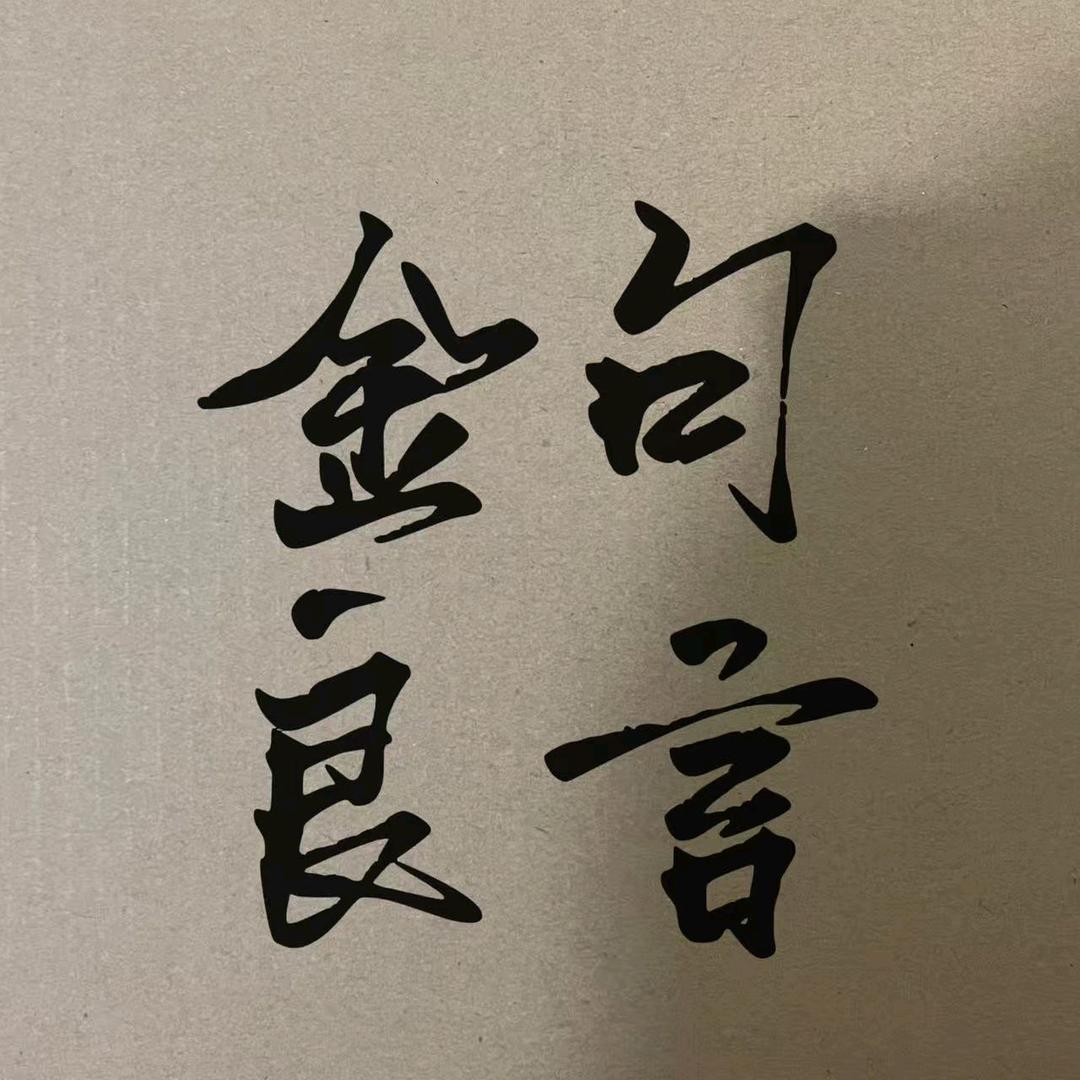 金句
良言